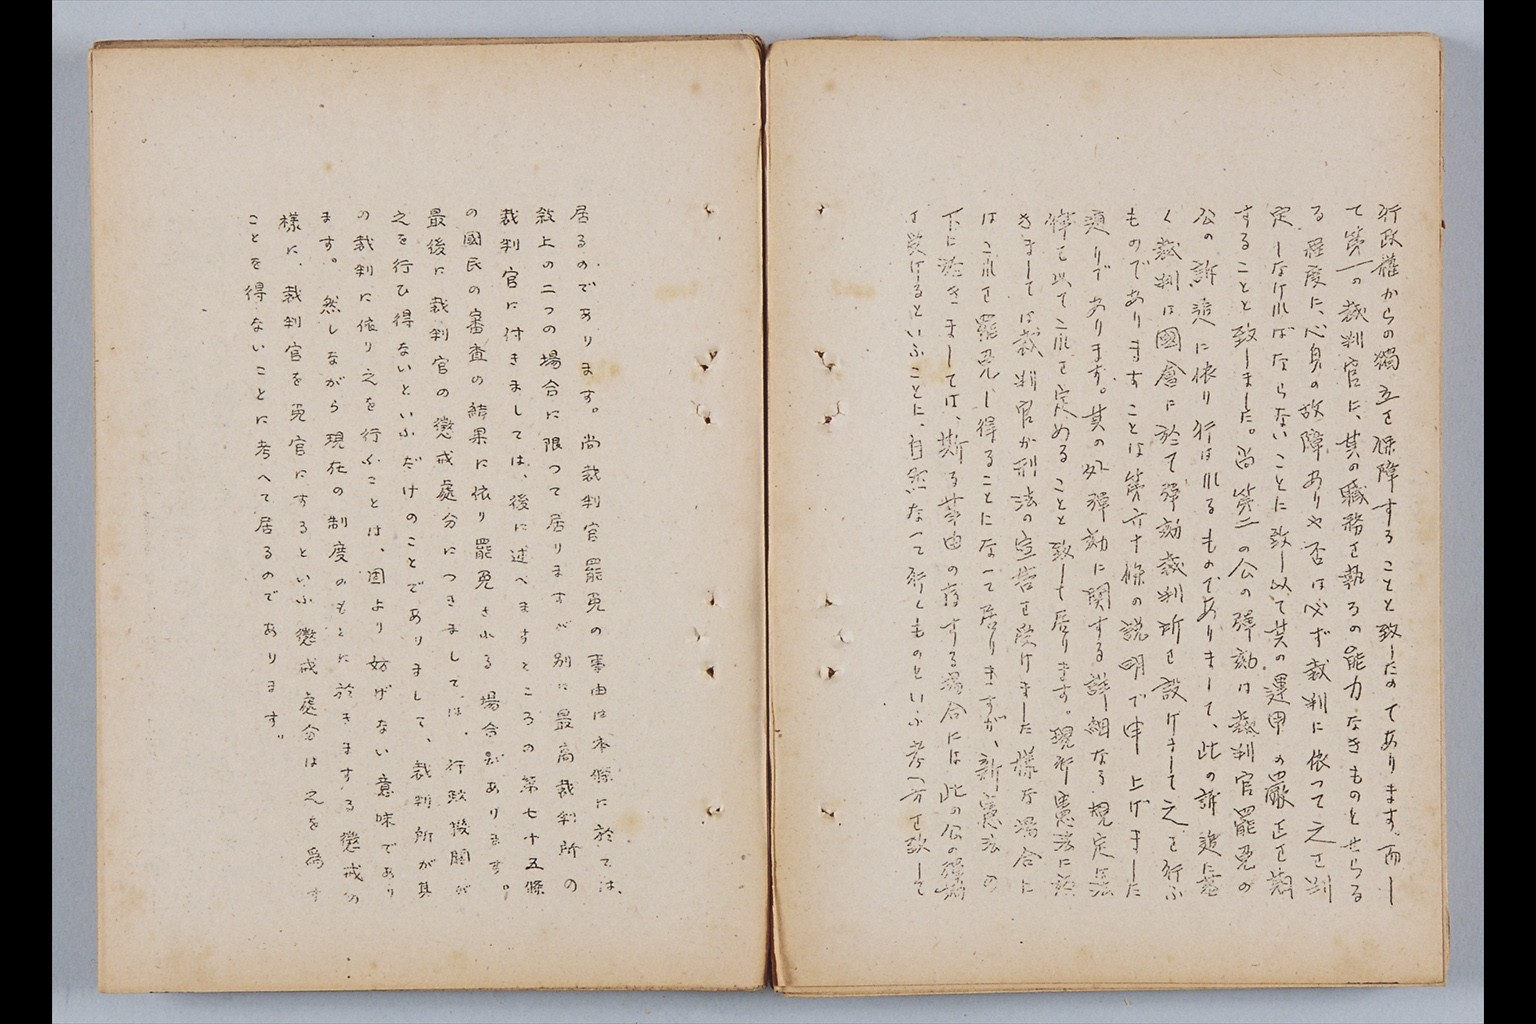 行政權からの獨立を保障することと致したのであります。而し
て第一の裁判官に、其の職務を執るの能力なきものとせらる
る程度に、心身の故障ありや否は必ず裁判に依つて之を判
定しなければならないことに致し以て其の運用の嚴正を期
することと致しました。尚第二の公の彈劾は裁判官罷免の
公の訴追に依り行はれるものでありまして、此の訴追に基
く裁判は國會に於て彈劾裁判所を設けまして之を行ふ
ものでありますことは第六十條の説明で申上げました
通りであります。其の外彈劾に関する詳細なる規定は法
律を以てこれを定めることと致して居ります。現行憲法に於
きましては裁判官が刑法の宣告を受けました様な場合に
はこれを罷免し得ることになつて居りますが、新憲法の
下に於きましては、斯る事由の存する場合には此の公の彈劾
を受けるといふことに、自然なつて行くものといふ考へ方を致して
居るのであります。尚裁判官罷免の事由は本條に於ては、
敘上の二つの場合に限つて居りますが別に最高裁判所の
裁判官に付きましては、後に述べますところの第七十五條
の國民の審査の結果に依り罷免される場合があります。
最後に裁判官の懲戒處分につきましては、行政機関が
之を行ひ得ないといふだけのことでありまして、裁判所が其
の裁判に依り之を行ふことは、固より妨げない意味であり
ます。然しながら現在の制度のもとに於きまする懲戒の
様に、裁判官を免官にするといふ懲戒處分は之を爲す
ことを得ないことに考へて居るのであります。